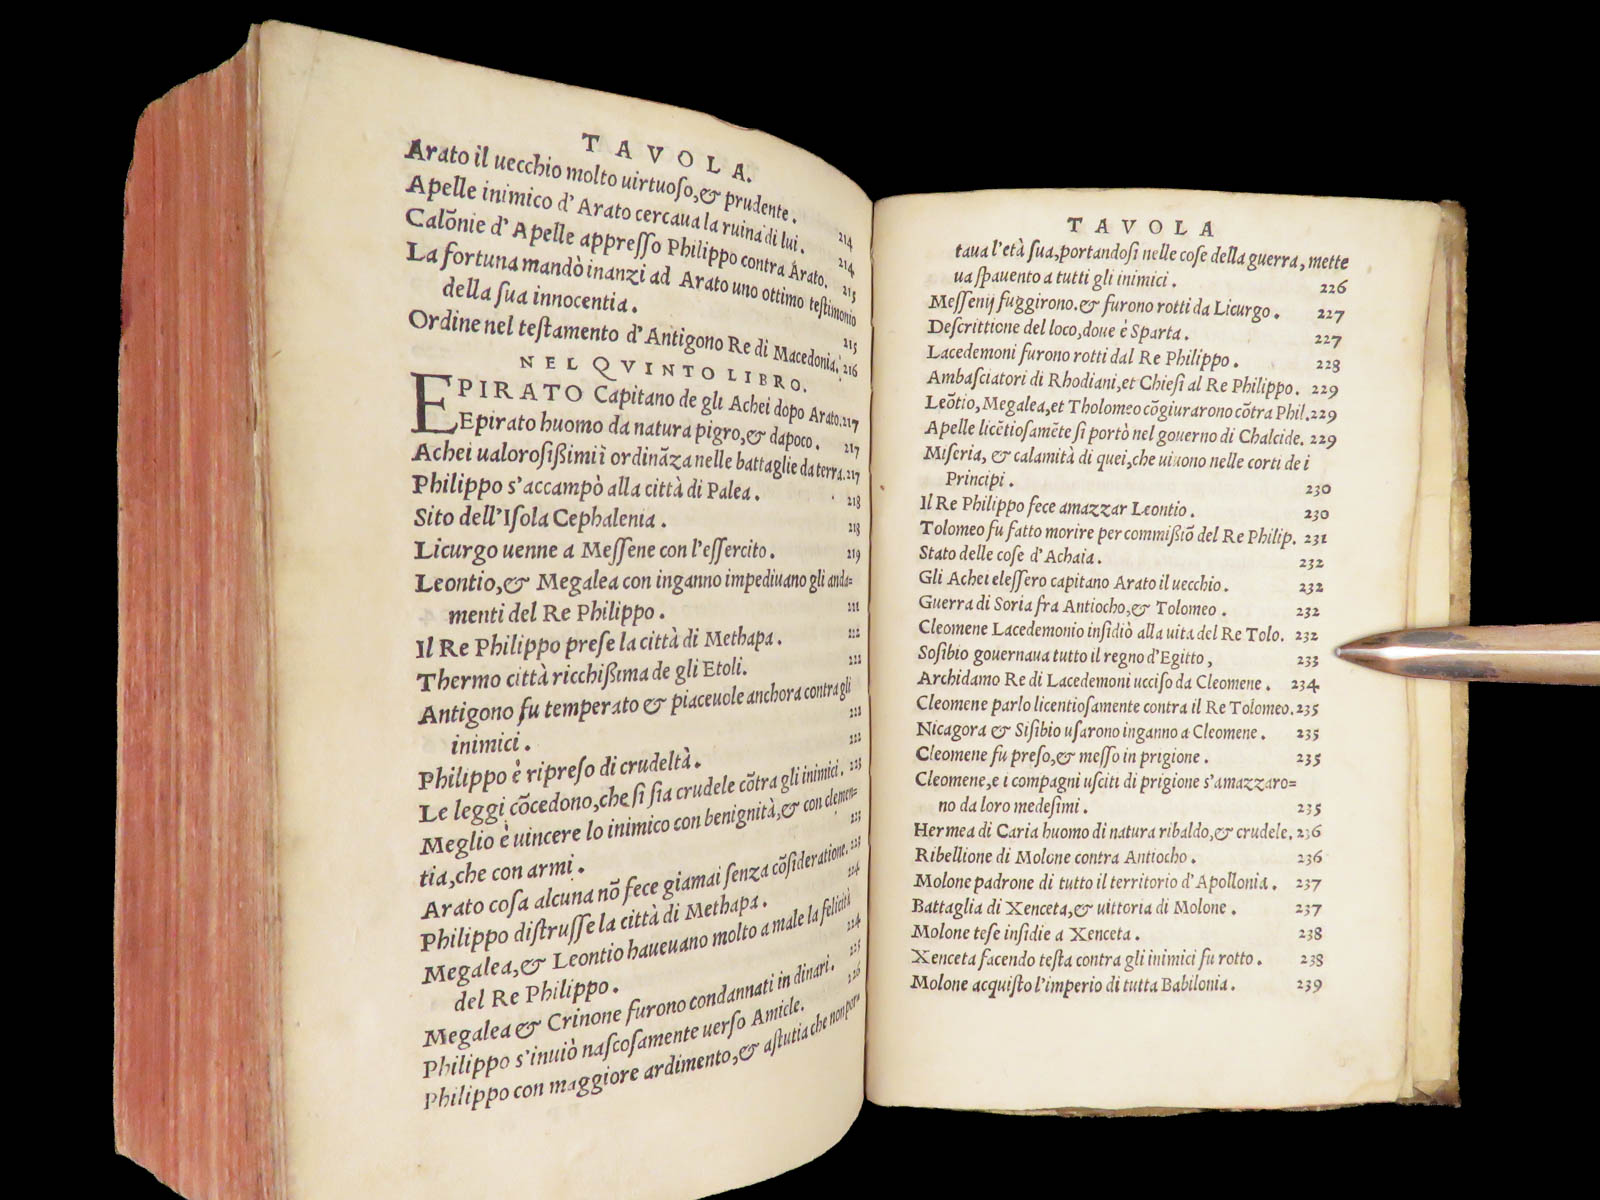 TAVOLA.
Arato il uecchio molto uirtuoſo,& prudente. 214
Apelle inimico d'Arato cercaua la ruina di lui. 214
Calõnie d'Apelle appreſſo Philippo contra Arato. 215
La fortuna mandò inanzi ad Arato uno ottimo teſtimonio
della ſua innocentia. 215
Ordine nel teſtamento d'Antigono Re di Macedonia. 216
NEL QVINTO LIBRO.
EPIRATO Capitano de gli Achei dopo Arato. 217
Epirato huomo da natura pigro,& dapoco. 217
Achei ualoroſißimi ĩ ordinãza nelle battaglie da terra. 217
Philippo s'accampò alla città di Palea. 218
Sito dell'Iſola Cephalenia. 218
Licurgo uenne a Meſſene con l'eſſercito. 219
Leontio,& Megalea con inganno impediuano gli anda=
menti del Re Philippo. 221
Il Re Philippo preſe la città di Methapa. 222
Thermo città ricchißima de gli Etoli. 222
Antigono fu temperato & piaceuole anchora contra gli
inimici. 222
Philippo è ripreſo di crudeltà. 222
Le leggi cõcedono,che ſi ſia crudele cõtra gli inimici. 223
Meglio è uincere lo inimico con benignità,& con clemen=
tia,che con armi. 223
Arato coſa alcuna nõ fece giamai ſenza cõſideratione. 223
Philippo diſtruſſe la città di Methapa. 224
Megalea,& Leontio haueuano molto a male la felicità
del Re Philippo. 224
Megalea & Crinone furono condannati in dinari. 225
Philippo s'inuiò naſcoſamente uerſo Amicle. 226
Philippo con maggiore ardimento,& aſtutia che non por=
TAVOLA
taua l'età ſua,portandoſi nelle coſe della guerra, mette
ua ſpauento a tutti gli inimici. 226
Meſſenij fuggirono.& furono rotti da Licurgo. 227
Deſcrittione del loco,doue è Sparta. 227
Lacedemoni furono rotti dal Re Philippo. 228
Ambaſciatori di Rhodiani,et Chieſi al Re Philippo. 229
Leõtio, Megalea,et Tholomeo cõgiurarono cõtra Phil. 229
Apelle licẽtioſamẽte ſi portò nel gouerno di Chalcide. 229
Miſeria, & calamità di quei,che uiuono nelle corti de i
Principi. 230
Il Re Philippo fece amazzar Leontio. 230
Tolomeo fu fatto morire per commißiõ del Re Philip. 231
Stato delle coſe d'Achaia. 232
Gli Achei eleſſero capitano Arato il uecchio. 232
Guerra di Soria fra Antiocho,& Tolomeo. 232
Cleomene Lacedemonio inſidiò alla uita del Re Tolo. 232
Soſibio gouernaua tutto il regno d'Egitto, 233
Archidamo Re di Lacedemoni ucciſo da Cleomene. 234
Cleomene parlo licentioſamente contra il Re Tolomeo. 235
Nicagora & Siſibio uſarono inganno a Cleomene. 235
Cleomene fu preſo,& meſſo in prigione. 235
Cleomene,e i compagni uſciti di prigione s'amazzaro=
no da loro medeſimi. 235
Hermea di Caria huomo di natura ribaldo,& crudele. 236
Ribellione di Molone contra Antiocho. 236
Molone padrone di tutto il territorio d'Apollonia. 237
Battaglia di Xenceta,& uittoria di Molone. 237
Molone teſe inſidie a Xenceta. 238
Xenceta facendo teſta contra gli inimici fu rotto. 238
Molone acquiſto l'imperio di tutta Babilonia. 239